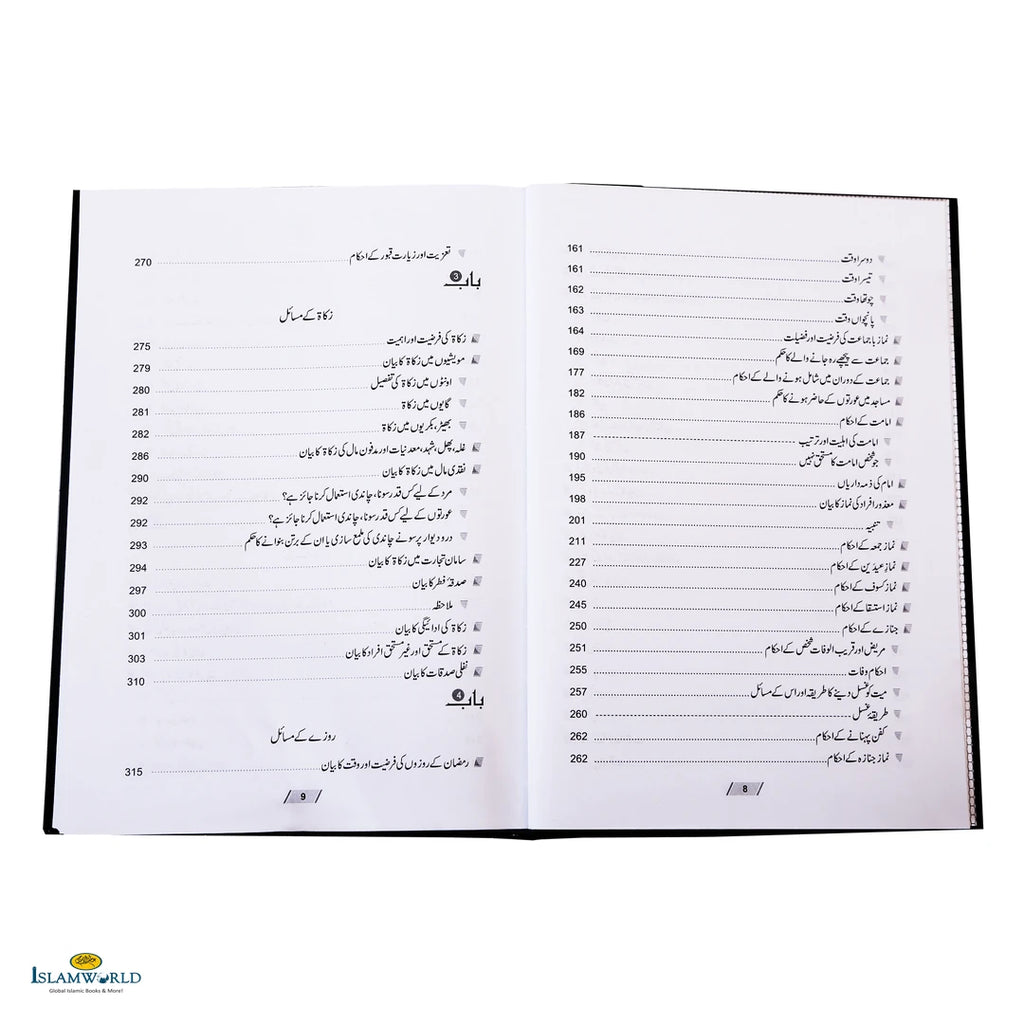 دوسرا وقت 161
تیسرا وقت 161
چوتھا وقت 162
پانچواں وقت 163
نماز باجماعت کی فرضیت اور فضیلت 164
جماعت سے پیچھے رہ جانے والے کا حکم 169
جماعت کے دوران میں شامل ہونے والے کے احکام 177
مساجد میں عورتوں کے حاضر ہونے کا حکم 182
امامت کے احکام 186
امامت کی اہلیت اور ترتیب 187
جو شخص امامت کا مستحق نہیں 190
امام کی ذمہ داریاں 195
معذور افراد کی نماز کا بیان 198
تنبیہ 201
نماز جمعہ کے احکام 211
نماز عیدین کے احکام 227
نماز کسوف کے احکام 240
نماز استسقا کے احکام 245
جنازے کے احکام 250
مریض اور قریب الوفات شخص کے احکام 251
احکام وفات 255
میت کو غسل دینے کا طریقہ اور اس کے مسائل 257
طریقۂ غسل 260
کفن پہنانے کے احکام 262
نماز جنازہ کے احکام 262
8
تعزیت اور زیارت قبور کے احکام 270
باب 3
زکاۃ کے مسائل
زکاۃ کی فرضیت اور اہمیت 275
مویشیوں میں زکاۃ کا بیان 279
اونٹوں میں زکاۃ کی تفصیل 280
گایوں میں زکاۃ 281
بھیڑ، بکریوں میں زکاۃ 282
غلہ، پھل، شہد، معدنیات اور مدفون مال کی زکاۃ کا بیان 286
نقدی مال میں زکاۃ کا بیان 290
مرد کے لیے کس قدر سونا، چاندی استعمال کرنا جائز ہے؟ 292
عورتوں کے لیے کس قدر سونا، چاندی استعمال کرنا جائز ہے؟ 292
در و دیوار پر سونے چاندی کی ملمع سازی یا ان کے برتن بنوانے کا حکم 293
سامان تجارت میں زکاۃ کا بیان 294
صدقۂ فطر کا بیان 297
ملاحظہ 300
زکاۃ کی ادائیگی کا بیان 301
زکاۃ کے مستحق اور غیر مستحق افراد کا بیان 303
نفلی صدقات کا بیان 310
باب 4
روزے کے مسائل
رمضان کے روزوں کی فرضیت اور وقت کا بیان 315
9
ISLAMWORLD
Global Islamic Books & More!